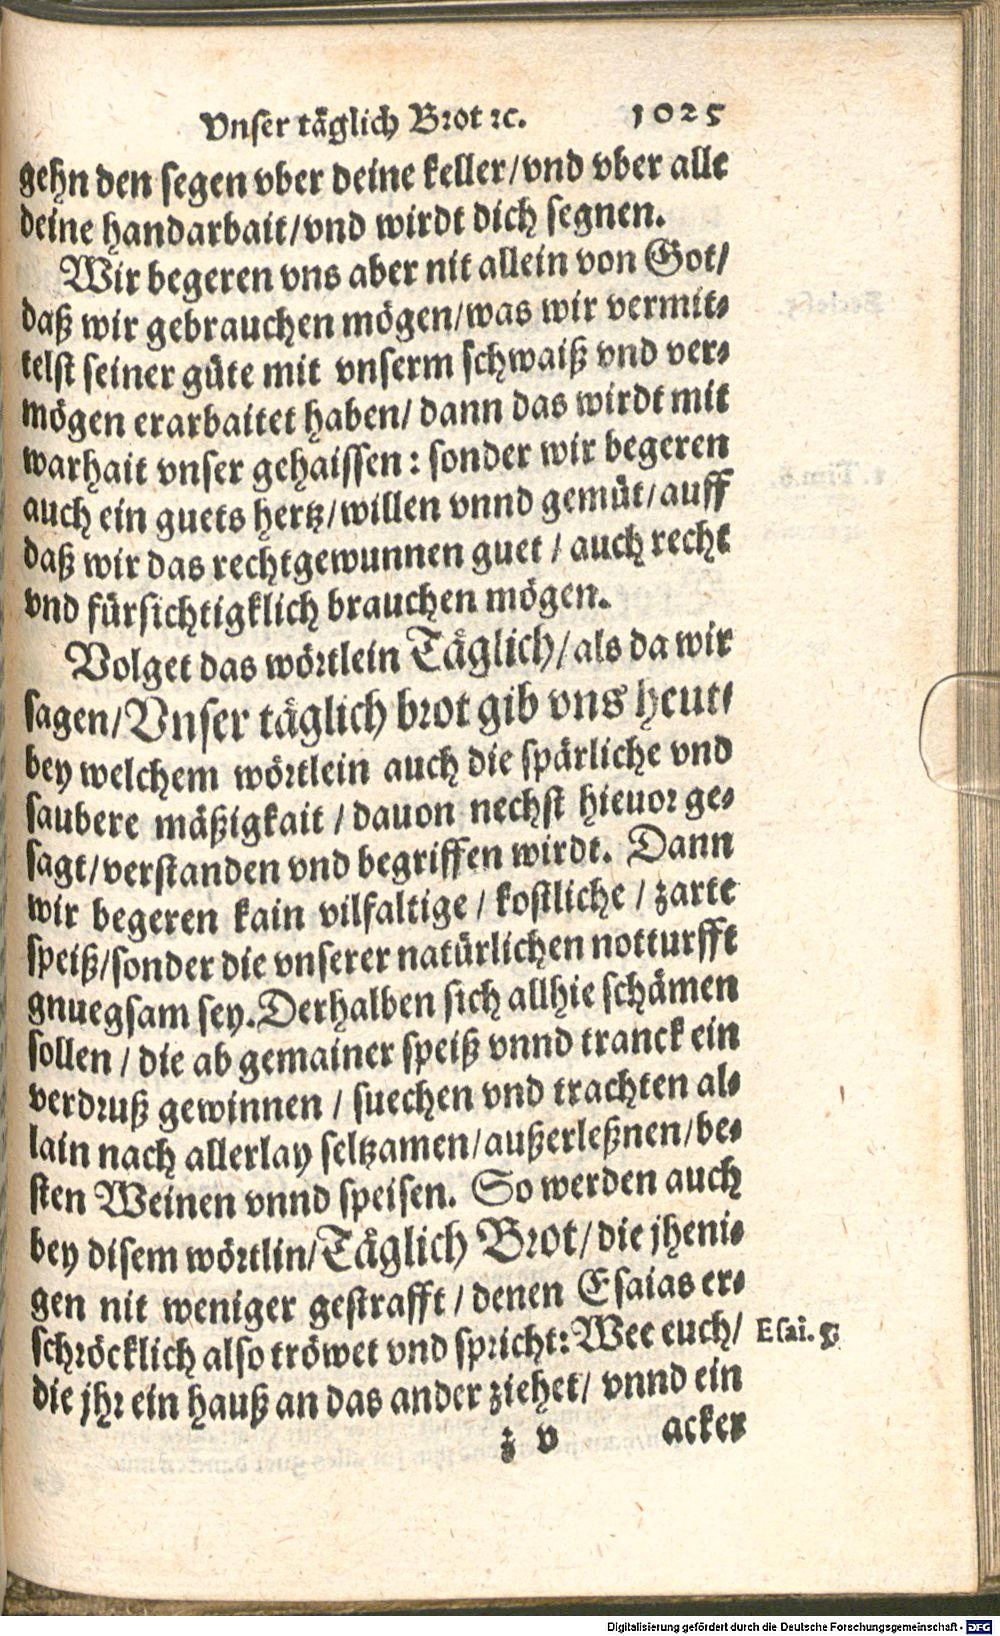 Vnser täglich Brot ꝛc. 1025
gehn den segen vber deine keller/vnd vber alle
deine handarbait/vnd wirdt dich segnen.
Wir begeren vns aber nit allein von Got/
daß wir gebrauchen mögen/was wir vermit⸗
telst seiner güte mit vnserm schwaiß vnd ver⸗
mögen erarbaitet haben/ dann das wirdt mit
warhait vnser gehaissen: sonder wir begeren
auch ein guets hertz/willen vnnd gemüt/auff
daß wir das rechtgewunnen guet / auch recht
vnd fürsichtigklich brauchen mögen.
Volget das wörtlein Täglich/als da wir
sagen/Vnser täglich brot gib vns heut/
bey welchem wörtlein auch die spärliche vnd
saubere mäßigkait / dauon nechst hieuor ge⸗
sagt/verstanden vnd begriffen wirdt. Dann
wir begeren kain vilfaltige / kostliche / zarte
speiß/sonder die vnserer natürlichen notturfft
gnuegsam sey. Derhalben sich allhie schämen
sollen / die ab gemainer speiß vnnd tranck ein
verdruß gewinnen / suechen vnd trachten al⸗
lain nach allerlay seltzamen/außerleßnen/be⸗
sten Weinen vnnd speisen. So werden auch
bey disem wörtlin/Täglich Brot/die jheni⸗
gen nit weniger gestrafft / denen Esaias er⸗
schröcklich also tröwet vnd spricht: Wee euch/
Esai. 5.
die jhr ein hauß an das ander ziehet/ vnnd ein
z v acker
Digitalisierung gefördert durch die Deutsche Forschungsgemeinschaft - DFG